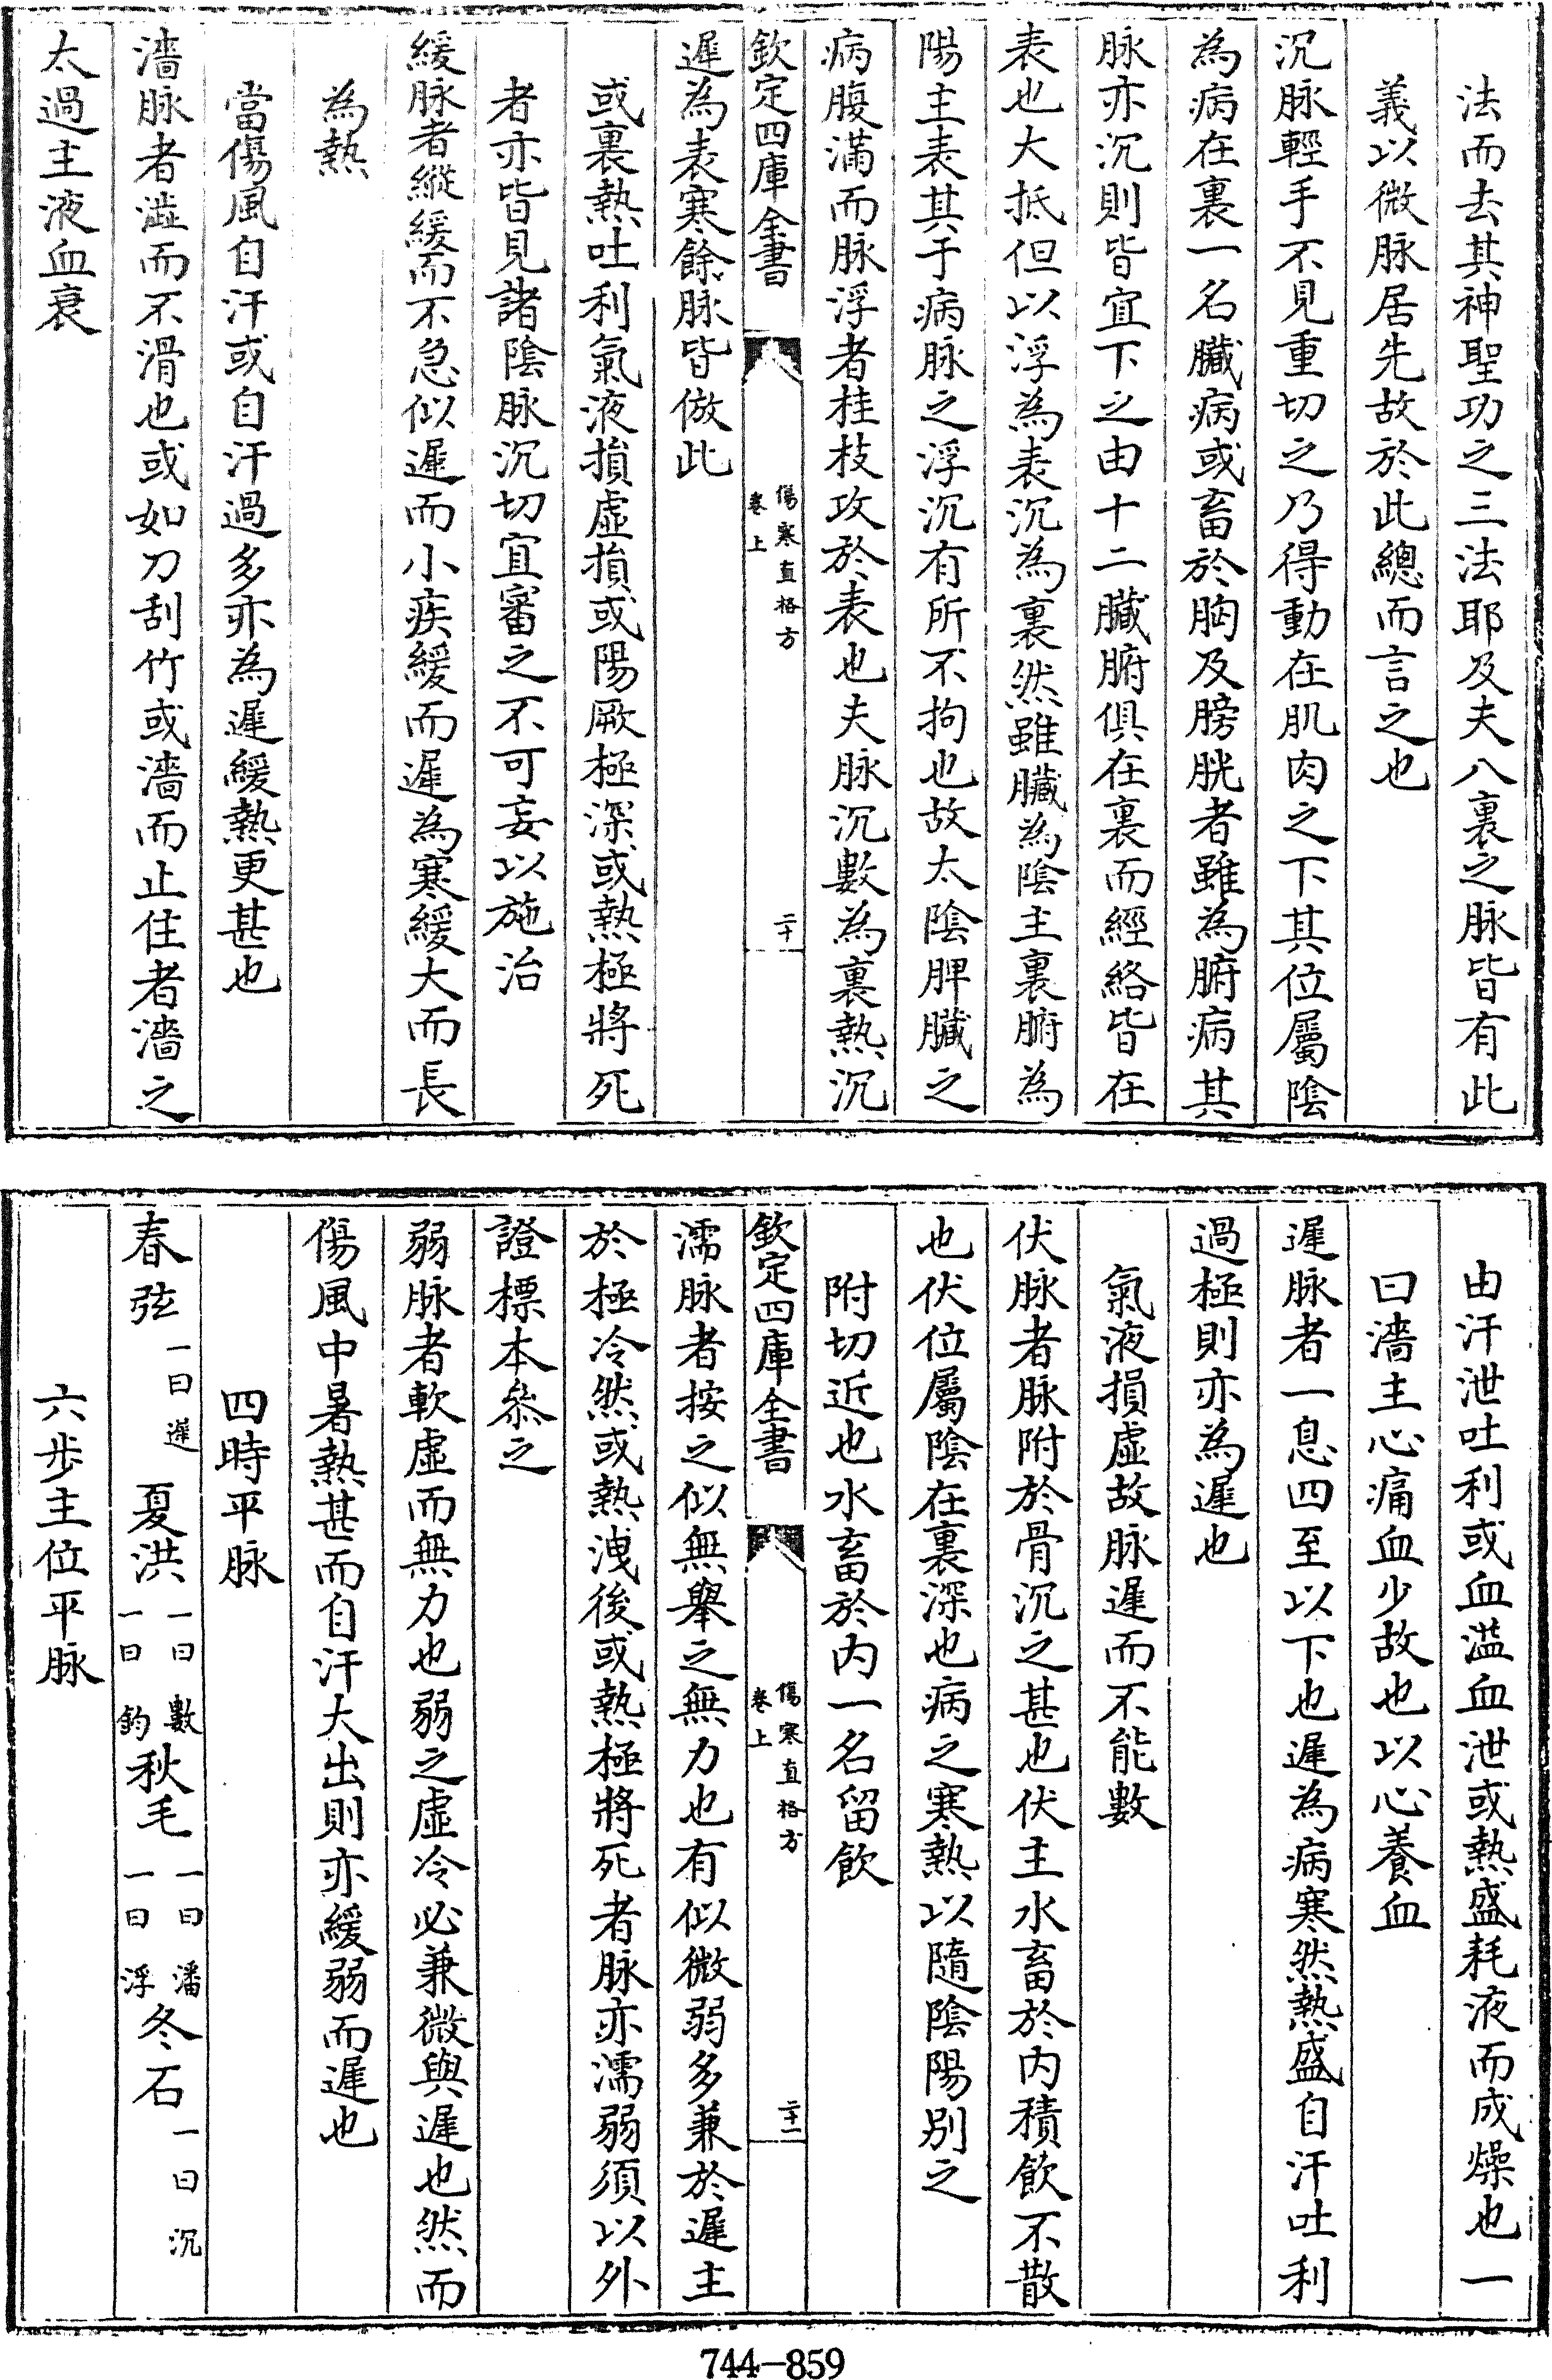 法而去其神聖功之三法耶及夫八裏之脉皆有此
義以微脉居先故於此總而言之也
沉脉輕手不見重切之乃得動在肌肉之下其位屬陰
為病在裏一名臟病或畜於胸及膀胱者雖為腑病其
脉亦沉則皆宜下之由十二臟腑俱在裏而經絡皆在
表也大抵但以浮為表沉為裏然雖臟為陰主裏腑為
陽主表其于病脉之浮沉有所不拘也故太陰脾臟之
病腹滿而脉浮者桂枝攻於表也夫脉沉數為裏熱沉
欽定四庫全書
傷寒直格方
卷上
二十
遲為表寒餘脉皆倣此
或裏熱吐利氣液損虛損或陽厥極深或熱極將死
者亦皆見諸陰脉沉切宜審之不可妄以施治
緩脉者縱緩而不急似遲而小疾緩而遲為寒緩大而長
為熱
當傷風自汗或自汗過多亦為遲緩熱更甚也
濇脉者澁而不滑也或如刀刮竹或濇而止住者濇之
太過主液血衰
由汗泄吐利或血溢血泄或熱盛耗液而成燥也一
曰濇主心痛血少故也以心養血
遲脉者一息四至以下也遲為病寒然熱盛自汗吐利
過極則亦為遲也
氣液損虛故脉遲而不能數
伏脉者脉附於骨沉之甚也伏主水畜於内積飲不散
也伏位屬陰在裏深也病之寒熱以隨陰陽别之
附切近也水畜於内一名留飲
欽定四庫全書
傷寒直格方
卷上
二十一
濡脉者按之似無舉之無力也有似微弱多兼於遲主
於極冷然或熱洩後或熱極將死者脉亦濡弱須以外
證標本叅之
弱脉者軟虛而無力也弱之虛冷必兼微與遲也然而
傷風中暑熱甚而自汗大出則亦緩弱而遲也
四時平脉
春弦一曰遲 夏洪一曰數一曰鈎秋毛一曰濇一曰浮冬石一曰沉
六步主位平脉
744-859